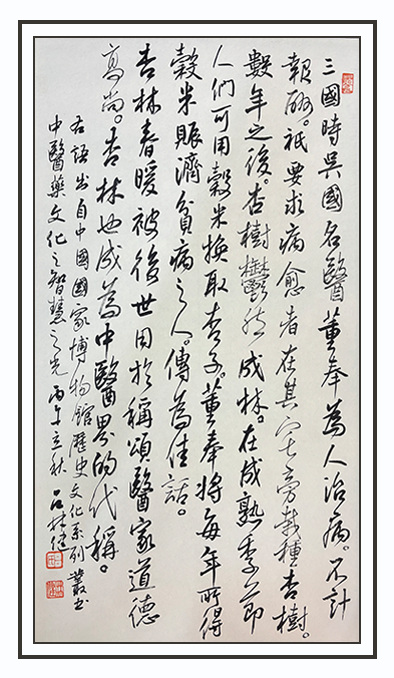 三國時吳國名醫董奉為人治病。不計
報酬。祇要求病愈者在其宅旁栽種杏樹。
數年之後。杏樹鬱然成林。在成熟季節
人們可用穀米換取杏子。董奉將每年所得
穀米賑濟貧病之人。傳為佳話。
杏林春暖被後世用於稱頌醫家道德
高尚。杏林也成為中醫界的代稱。
右語出自中國國家博物館歷史文化系列叢書
中醫藥文化之智慧之光 丙午立秋